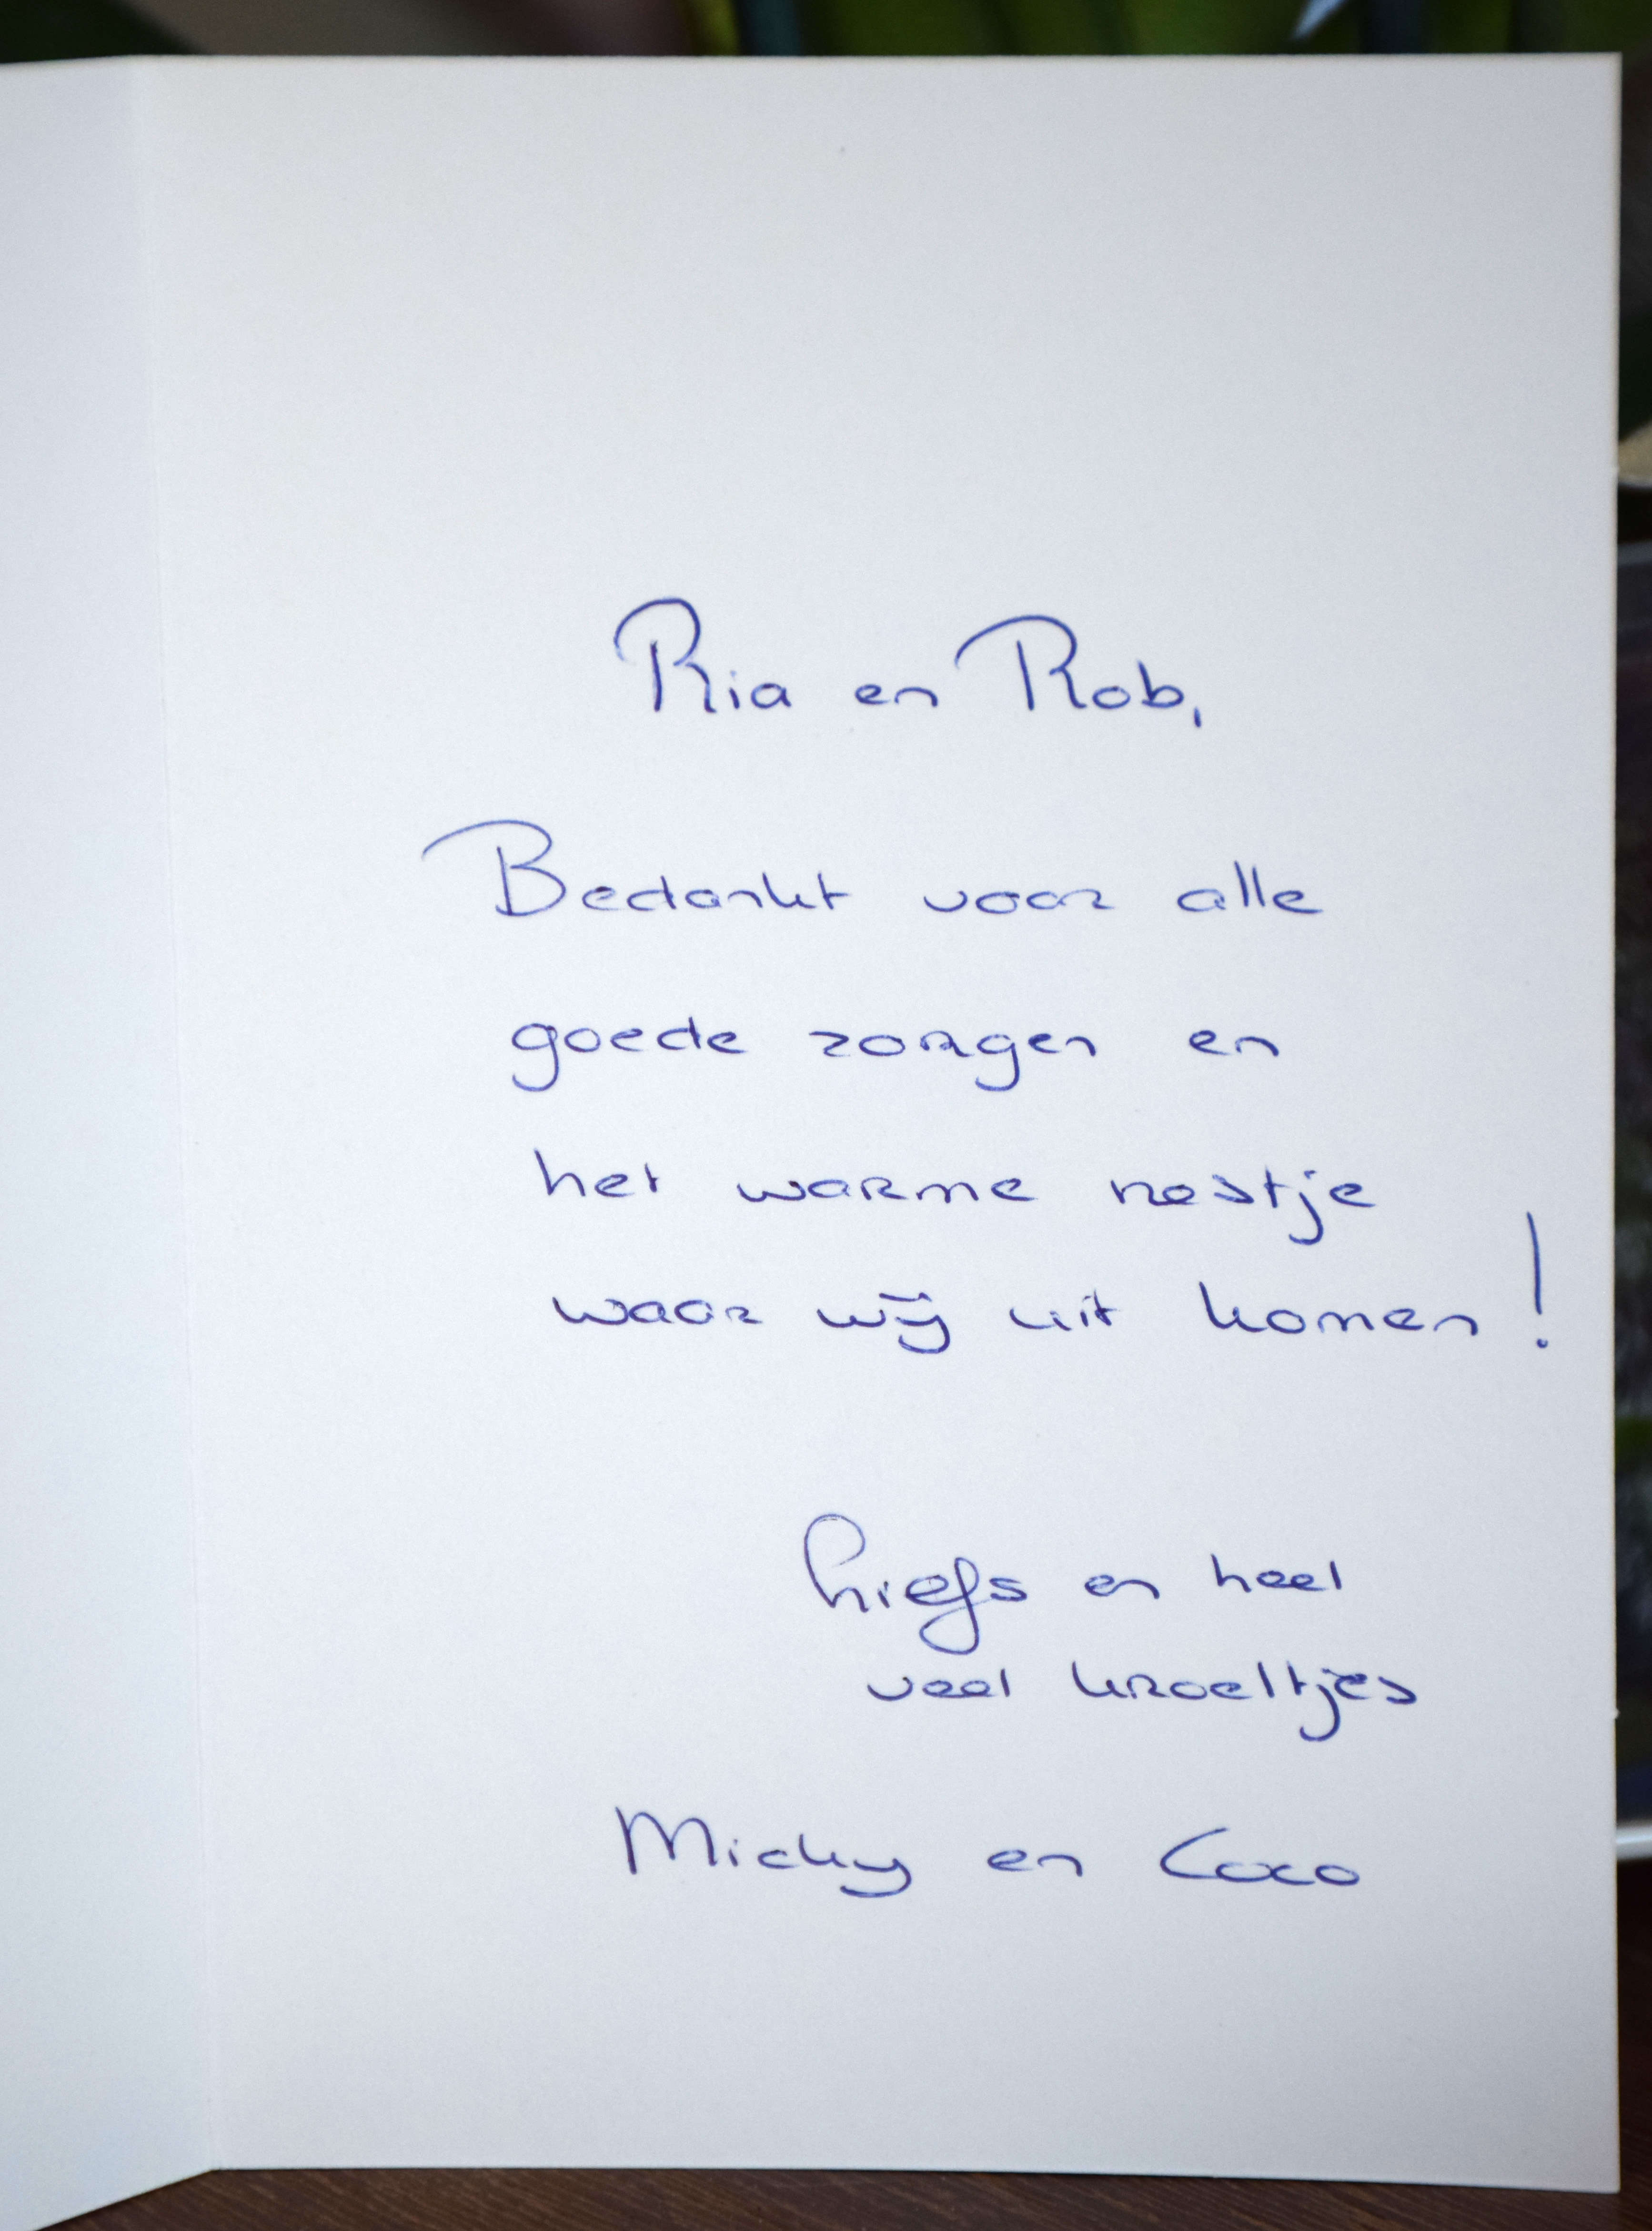 Ria en Rob,
Bedankt voor alle
goede zorgen en
het warme nestje
waar wij uit komen!
Liefs en heel
veel kroeltjes
Micky en Coco